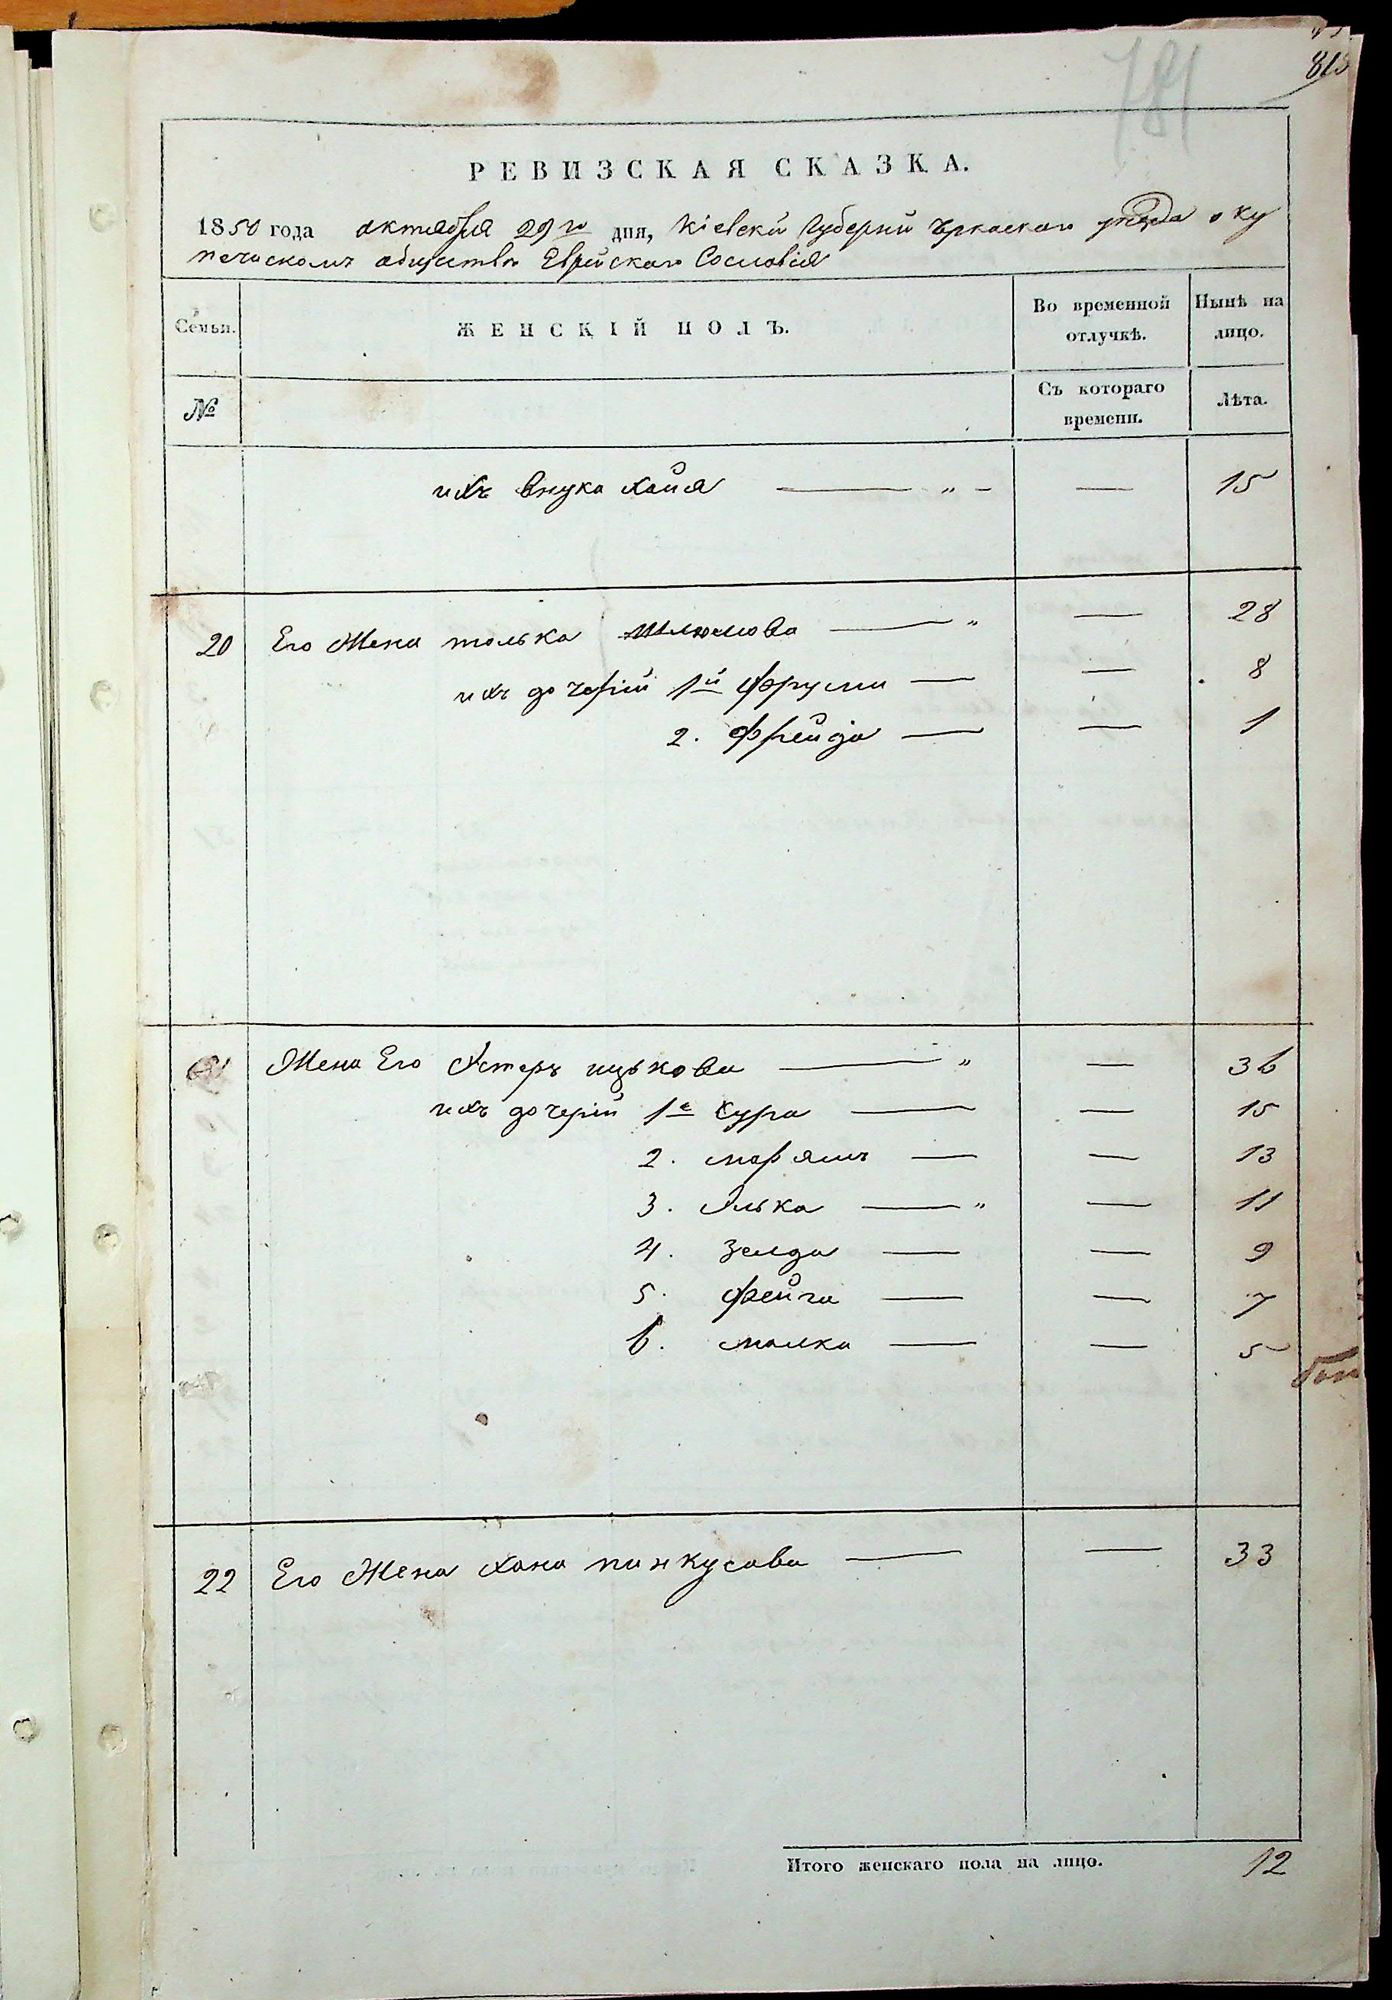 781
813
РЕВИЗСКАЯ СКАЗКА.
1850 года октября 29го дня, Кіевской Губерніи Чркаского уезда о ку
печискомъ обществе Еврейскаго Сословія
Семьи. ЖЕНСКІЙ ПОЛЪ. Во временной отлучкѣ. Нынѣ на лицо.
№ Съ котораго времени. Лѣта.
ихъ внука Хайя — „ — — 15
20 Его Жена Толька Шлюмова — „ — 28
ихъ дочерій 1й Фрума — — 8
2. Фрейда — — 1
21 Жена Его Эстеръ Ицькова — „ — 36
ихъ дочерій 1е Сура — — 15
2. Марямъ — — 13
3. Элька — „ — 11
4. Зелда — — 9
5. Фейга — — 7
6. Малка — — 5
22 Его Жена Хана Пинкусова — — 33
Итого женскаго пола на лицо. 12